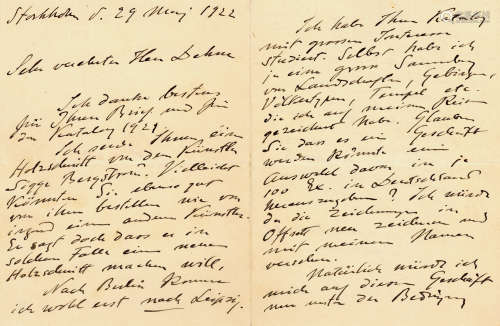 Stockholm d. 29 Maj 1922
Sehr verehrter Herr Dehne
Ich danke bestens
für Ihren Brief und für
den Katalog 1921.
Ich sende Ihnen einen
Holzschnitt von dem Künstler
Sigge Bergström. Vielleicht
könnten Sie ebenso gut
von ihm bestellen wie von
irgend einem andern Künstler.
Er sagt doch dass er in
solchem Falle einen neuen
Holzschnitt machen will,
Nach Berlin komme
ich wohl erst nach Leipzig.
Ich habe Ihren Katalog
mit grossem Interesse
studiert. Selbst habe ich
ja eine grosse Sammlung
von Landschaften, Gebirgen,
Volkstypen, Tempel etc.
die ich auf meinen Reisen
gezeichnet habe. Glauben
Sie dass es ein Geschäft
werden könnte eine
Auswahl davon in je
100 Ex. in Deutschland
herauszugeben? Ich würde
da die Zeichnungen in
Offsett neu zeichnen und
mit meinem Namen
versehen.
Natürlich würde ich
mich auf dieses Geschäft
nur unter der Bedingung